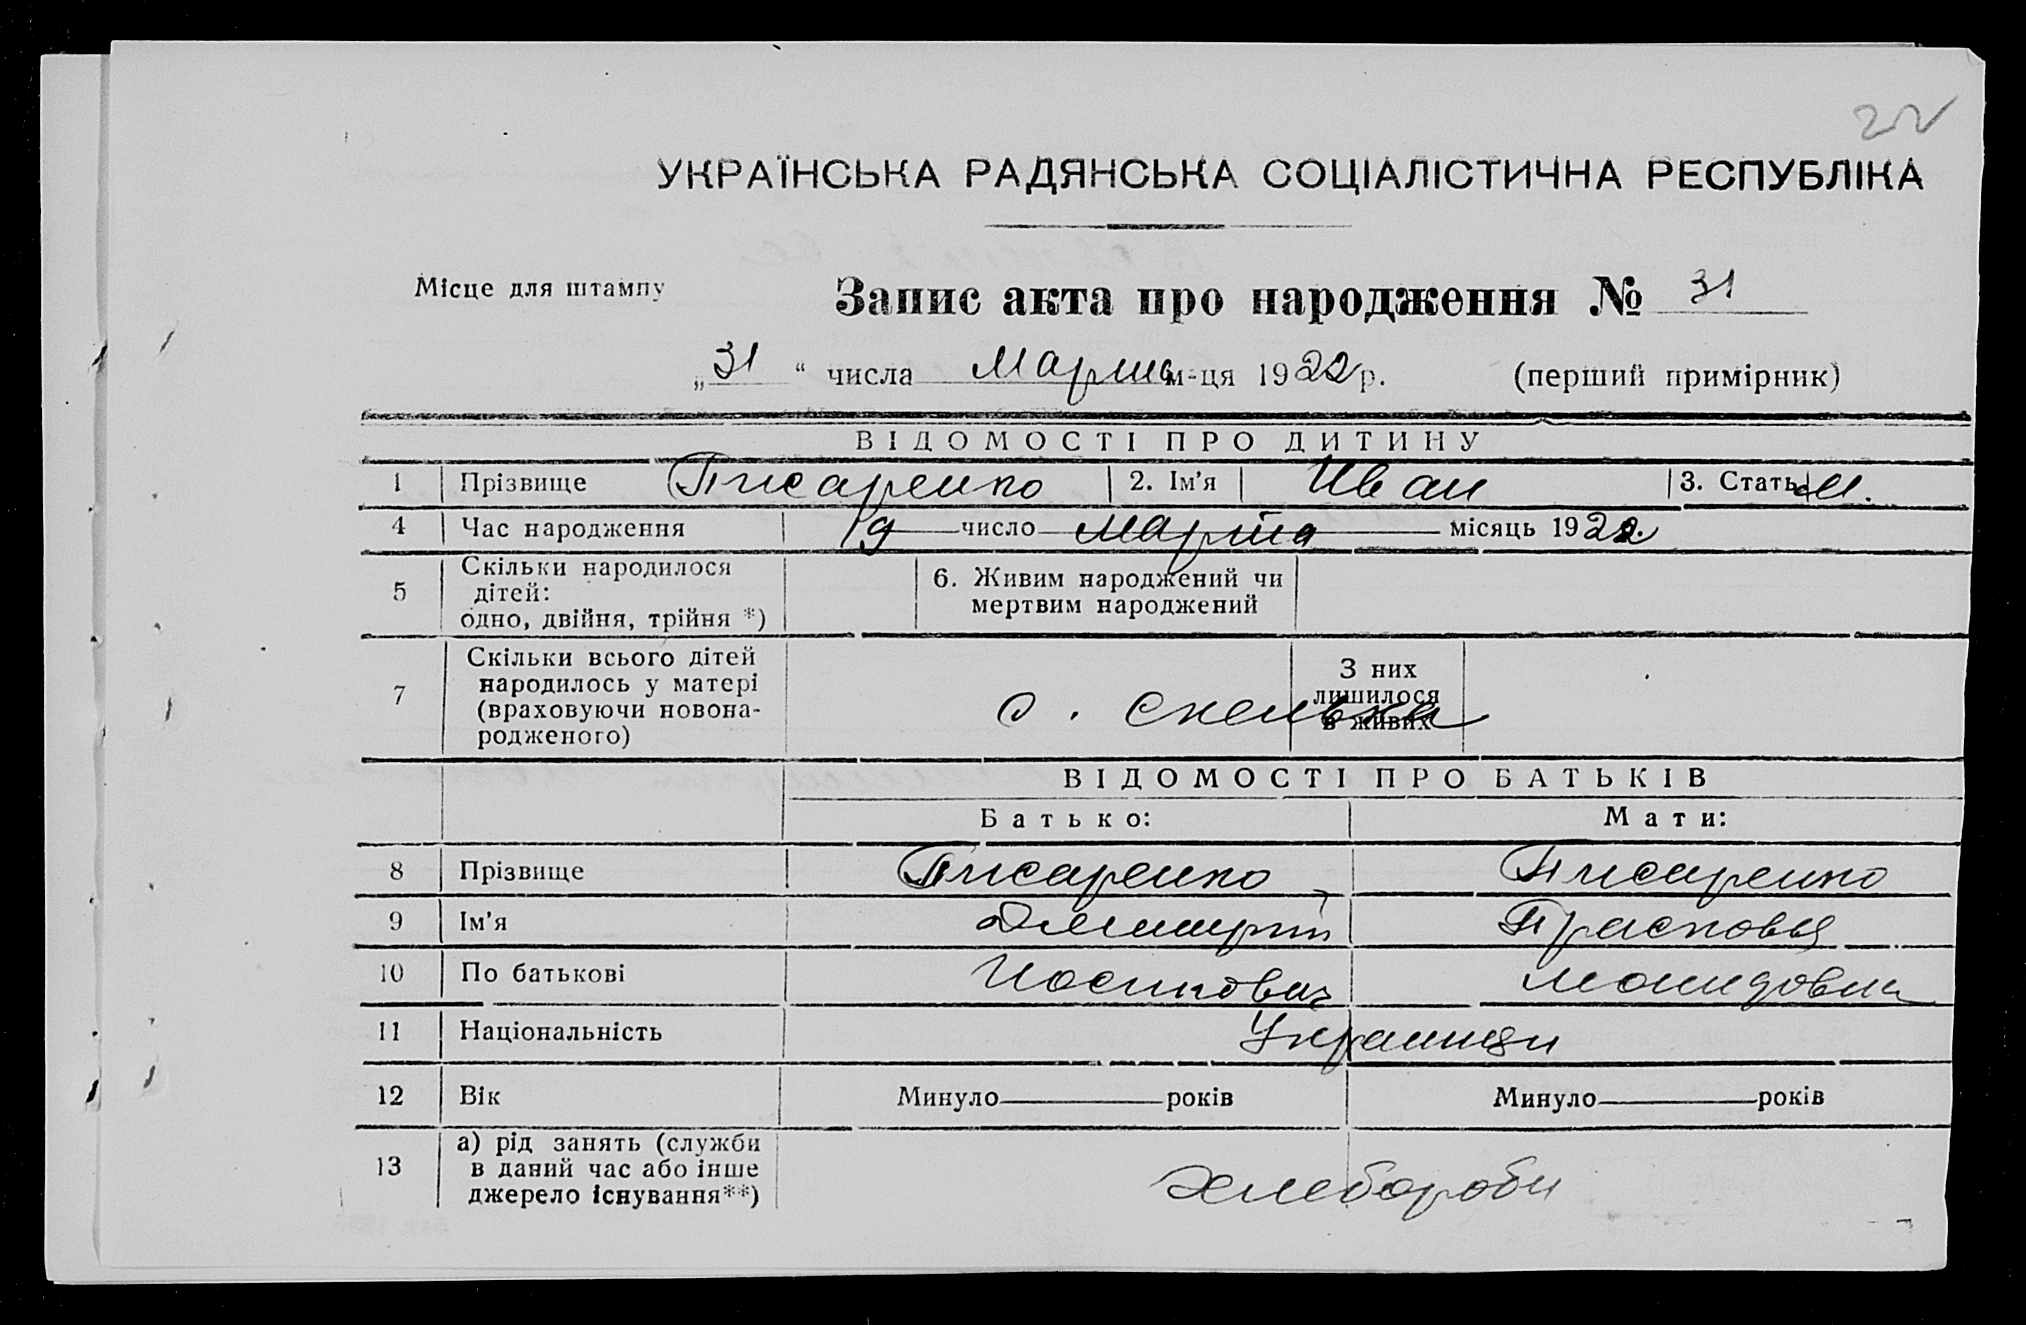 22
УКРАЇНСЬКА РАДЯНСЬКА СОЦІАЛІСТИЧНА РЕСПУБЛІКА
Місце для штампу
Запис акта про народження № 31
„31“ числа Марта м-ця 1922 р. (перший примірник)
ВІДОМОСТІ ПРО ДИТИНУ
1 Прізвище Писаренко 2. Ім'я Иван 3. Стать М.
4 Час народження 19 число Марта місяць 1922.
5 Скільки народилося
дітей:
одно, двійня, трійня *)
6. Живим народжений чи
мертвим народжений
7 Скільки всього дітей
народилось у матері
(враховуючи новона-
родженого)
с. Скельки
З них
лишилося
в живих
ВІДОМОСТІ ПРО БАТЬКІВ
Батько: Мати:
8 Прізвище Писаренко Писаренко
9 Ім'я Дмитрий Прасковья
10 По батькові Иосипович
11 Національність Украинци
12 Вік Минуло років Минуло років
13 а) рід занять (служби
в даний час або інше
джерело існування**)
хлебороби